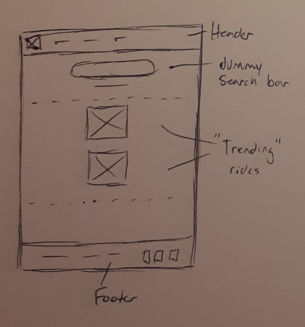 Header
dummy
search bar
"Trending"
rides
Footer